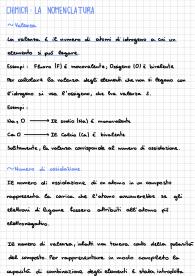 CHIMICA - LA NOMENCLATURA
~ Valenza
La valenza è il numero di atomi d'idrogeno a cui un
elemento si può legare.
Esempi: Fluoro (F) è monovalente, Ossigeno (O) è bivalente
Per calcolare la valenza degli elementi che non si legano con
l'idrogeno si usa l'ossigeno, che ha valenza 2.
Esempi:
Na₂O → Il sodio (Na) è monovalente
CaO → Il Calcio (Ca) è bivalente
Solitamente, la valenza corrisponde al numero di ossidazione.
~ Numero di ossidazione
Il numero di ossidazione di un atomo in un composto
rappresenta la carica che l'atomo assumerebbe se gli
elettroni di legame fossero attribuiti all'atomo più
elettronegativo.
Il numero di valenza, infatti non teneva conto della polarità
del composto. Per rappresentare in modo completo la
capacità di combinazione degli elementi è stato introdotto